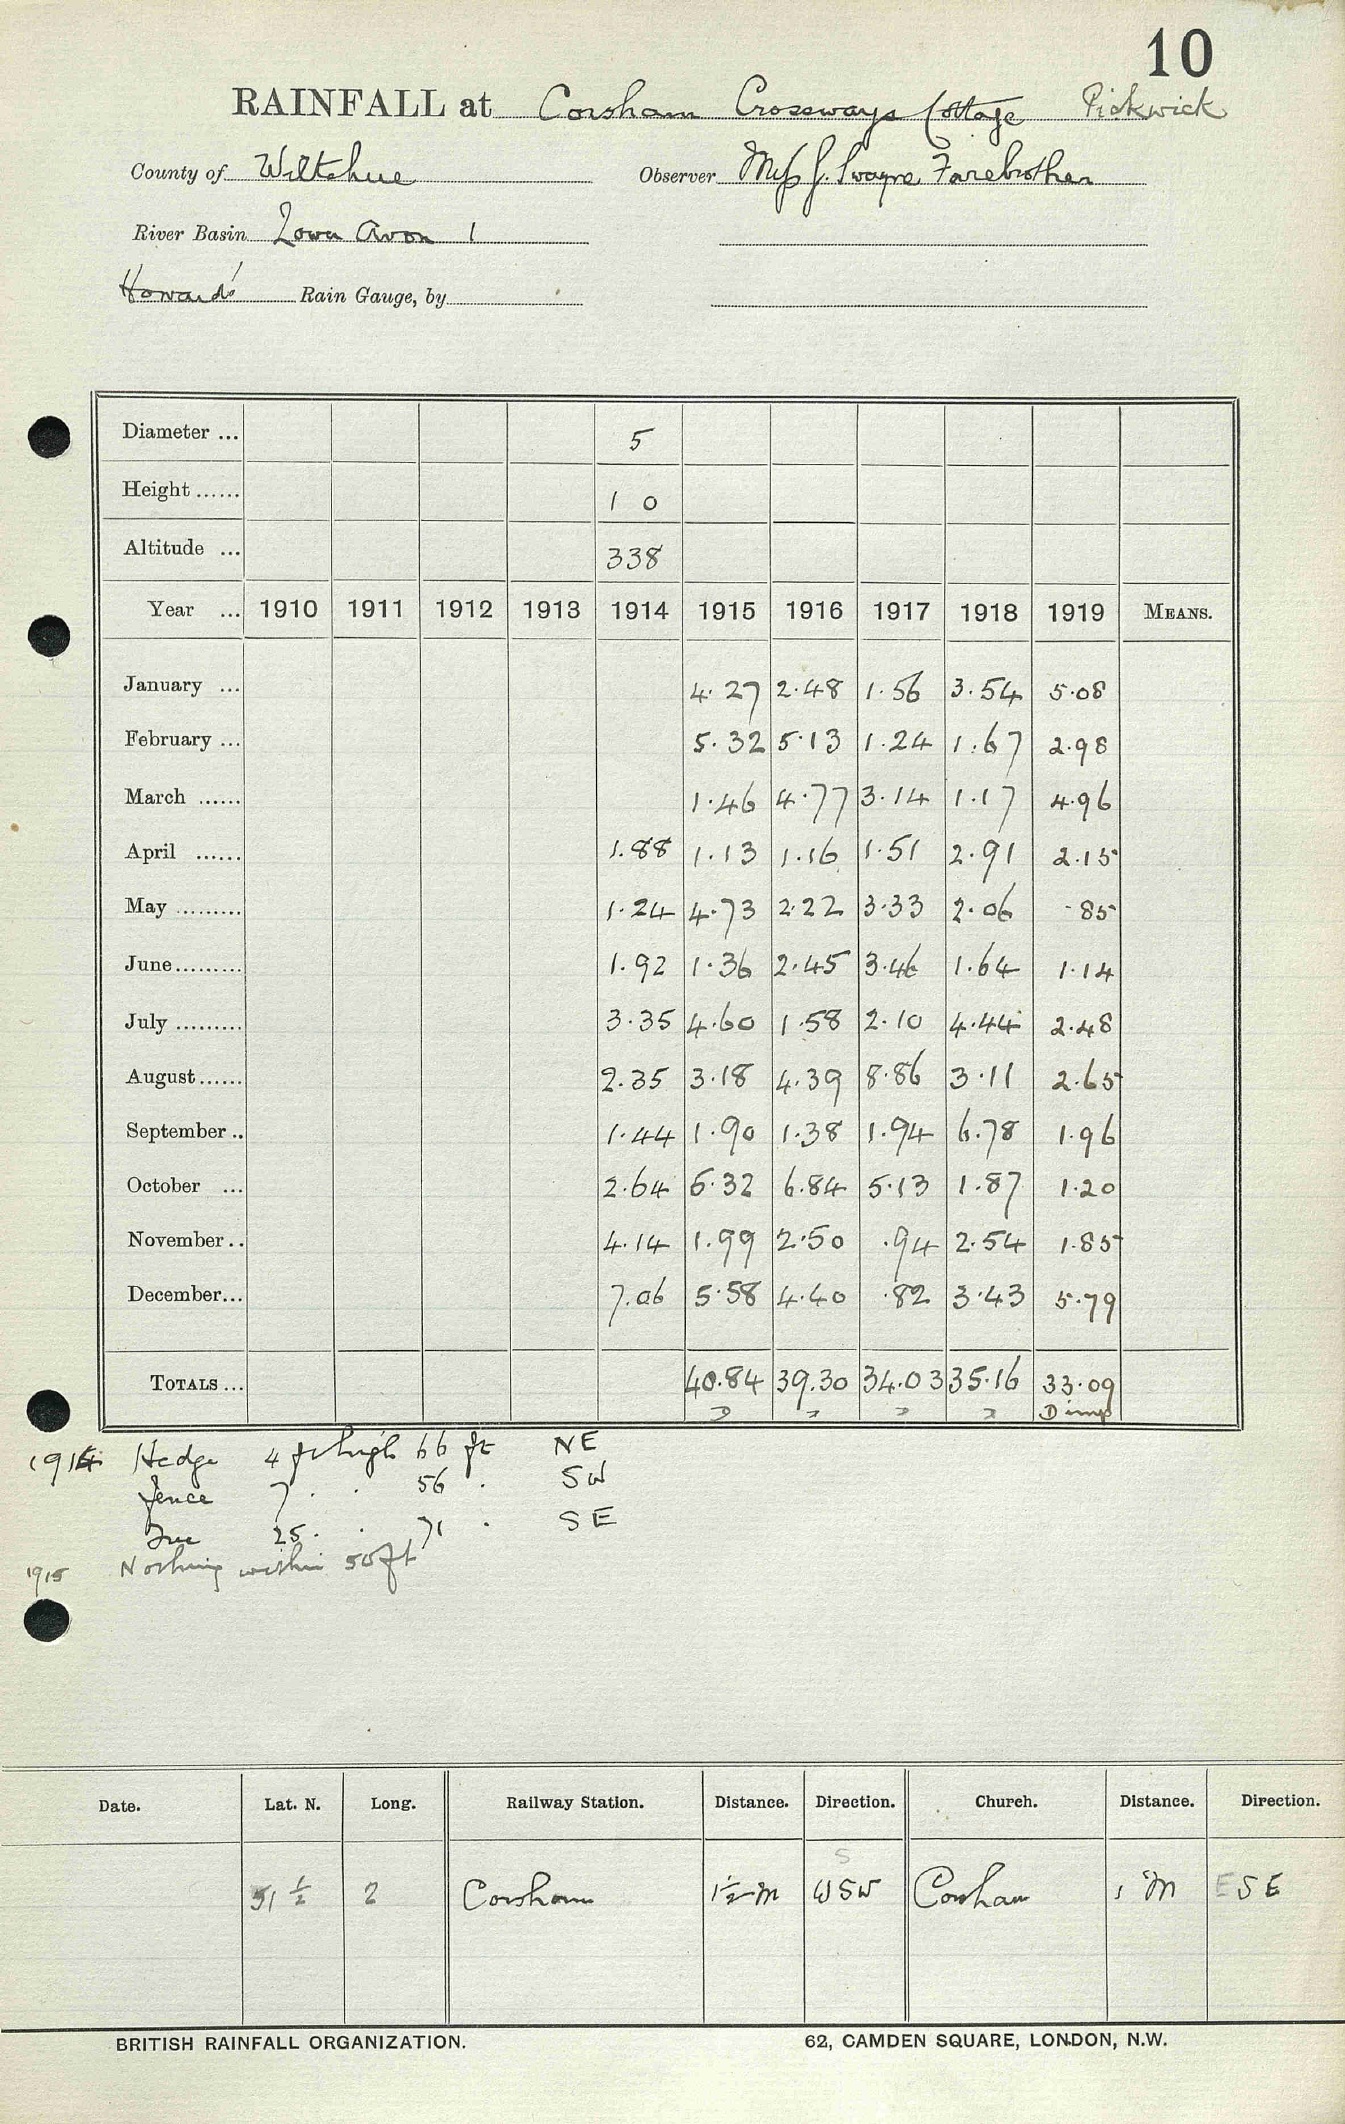 10
RAINFALL at Corsham Crossways Cottage Pickwick
County of Wiltshire Observer Miss J. Swayne Farebrother
River Basin Lower Avon 1
Howard's Rain Gauge, by
Diameter ... 5
Height ...... 1 0
Altitude ... 338
Year ... 1910 1911 1912 1913 1914 1915 1916 1917 1918 1919 MEANS.
January ... 4.27 2.48 1.56 3.54 5.08
February ... 5.32 5.13 1.24 1.67 2.98
March ...... 1.46 4.77 3.14 1.17 4.96
April ...... 1.88 1.13 1.16 1.51 2.91 2.15
May ......... 1.24 4.73 2.22 3.33 2.06 .85
June......... 1.92 1.36 2.45 3.46 1.64 1.14
July ......... 3.35 4.60 1.58 2.10 4.44 2.48
August...... 2.35 3.18 4.39 8.86 3.11 2.65
September .. 1.44 1.90 1.38 1.94 6.78 1.96
October ... 2.64 5.32 6.84 5.13 1.87 1.20
November .. 4.14 1.99 2.50 .94 2.54 1.85
December... 7.06 5.58 4.40 .82 3.43 5.79
TOTALS ... 40.84 39.30 34.03 35.16 33.09
D D imp
1914 Hedge 4 ft high 66 ft NE
fence 7 . . 56 . SW
Tree 25 . . 71 . SE
1915 Nothing within 50 ft
Date. Lat. N. Long. Railway Station. Distance. Direction. Church. Distance. Direction.
S
51 ½ 2 Corsham 1½ m WSW Corsham 1 m ESE
BRITISH RAINFALL ORGANIZATION. 62, CAMDEN SQUARE, LONDON, N.W.